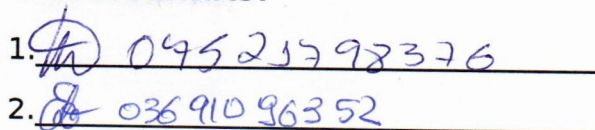 1. 04521798376
2. 03691096352